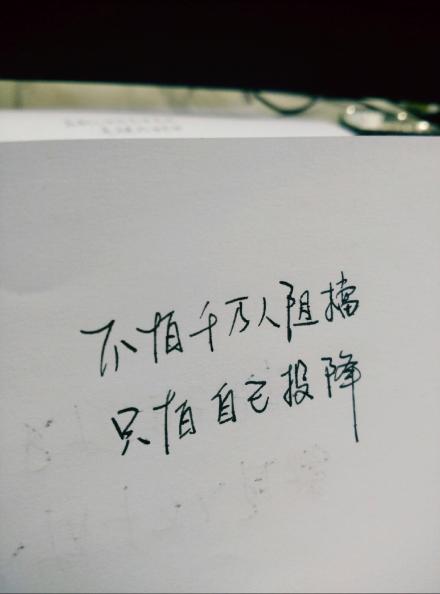 不怕千万人阻挡
只怕自己投降